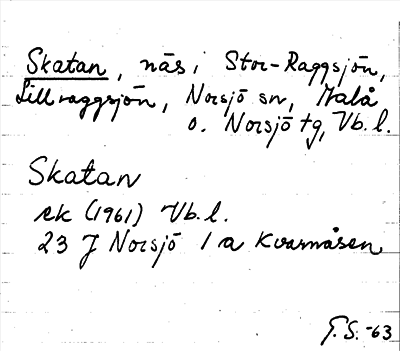 Skatan, näs i Stor-Raggsjön,
Lillraggsjön, Norsjö sn, Malå
o. Norsjö tg, Vb. l.
Skatan
ek (1961) Vb. l.
23 J Norsjö 1 a Kvarnåsen
T. S. -63